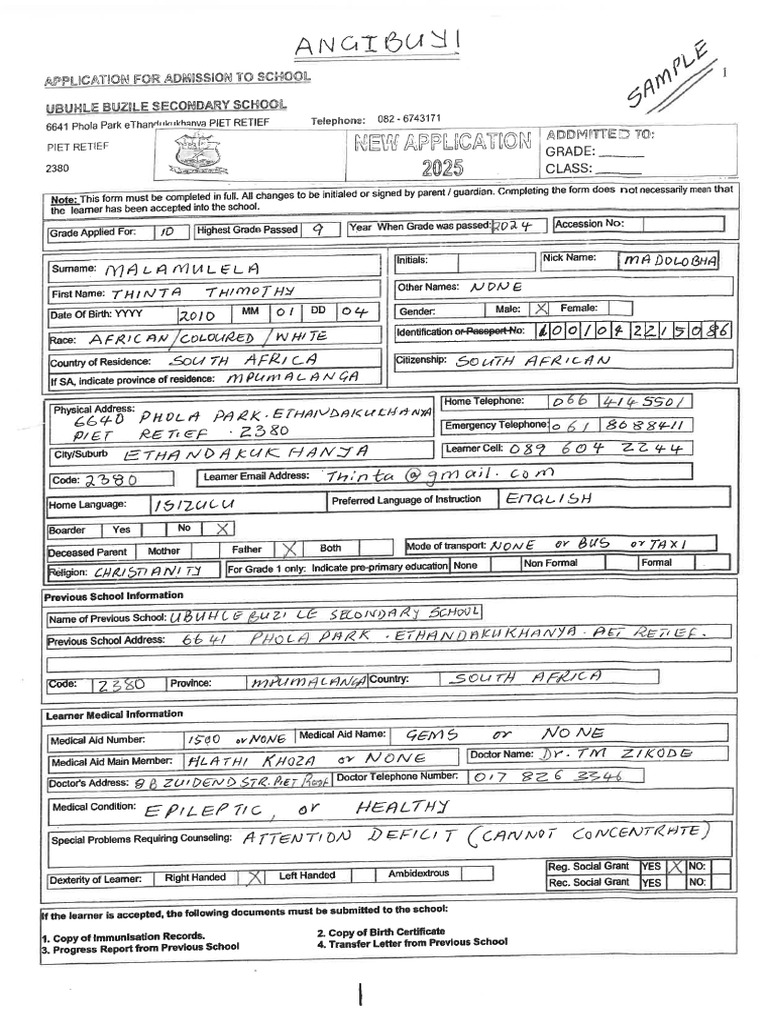 ANGIBUYI
SAMPLE
1
APPLICATION FOR ADMISSION TO SCHOOL
UBUHLE BUZILE SECONDARY SCHOOL
6641 Phola Park eThandukukhanya PIET RETIEF Telephone: 082 - 6743171
PIET RETIEF
2380
NEW APPLICATION
2025
ADDMITTED TO:
GRADE: ______
CLASS: ______
Note: This form must be completed in full. All changes to be initialed or signed by parent / guardian. Completing the form does not necessarily mean that
the learner has been accepted into the school.
Grade Applied For: 10 Highest Grade Passed 9 Year When Grade was passed: 2024 Accession No:
Surname: MALAMULELA Initials: Nick Name: MADOLOBHA
First Name: THINTA THIMOTHY Other Names: NONE
Date Of Birth: YYYY 2010 MM 01 DD 04 Gender: Male: X Female:
Race: AFRICAN/COLOURED/WHITE Identification or Passport No: 1001042215086
Country of Residence: SOUTH AFRICA Citizenship: SOUTH AFRICAN
If SA, indicate province of residence: MPUMALANGA
Physical Address: Home Telephone: 066 4145501
6640 PHOLA PARK. ETHANDAKUKHANYA
PIET RETIEF . 2380 Emergency Telephone: 061 8088411
City/Suburb ETHANDAKUKHANYA Learner Cell: 089 604 2244
Code: 2380 Learner Email Address: Thinta@gmail.com
Home Language: ISIZULU Preferred Language of Instruction ENGLISH
Boarder Yes No X
Deceased Parent Mother Father X Both Mode of transport: NONE or BUS or TAXI
Religion: CHRISTIANITY For Grade 1 only: Indicate pre-primary education None Non Formal Formal
Previous School Information
Name of Previous School: UBUHLE BUZILE SECONDARY SCHOOL
Previous School Address: 6641 PHOLA PARK . ETHANDAKUKHANYA. PIET RETIEF.
Code: 2380 Province: MPUMALANGA Country: SOUTH AFRICA
Learner Medical Information
Medical Aid Number: 1500 or NONE Medical Aid Name: GEMS or NONE
Medical Aid Main Member: HLATHI KHOZA or NONE Doctor Name: Dr. TM ZIKODE
Doctor's Address: 8B ZUIDEND STR. PIET Doctor Telephone Number: 017 826 3346
Medical Condition: EPILEPTIC, or HEALTHY
Special Problems Requiring Counseling: ATTENTION DEFICIT (CANNOT CONCENTRATE)
Dexterity of Learner: Right Handed X Left Handed Ambidextrous Reg. Social Grant YES X NO:
Rec. Social Grant YES NO:
If the learner is accepted, the following documents must be submitted to the school:
1. Copy of Immunisation Records. 2. Copy of Birth Certificate
3. Progress Report from Previous School 4. Transfer Letter from Previous School
1